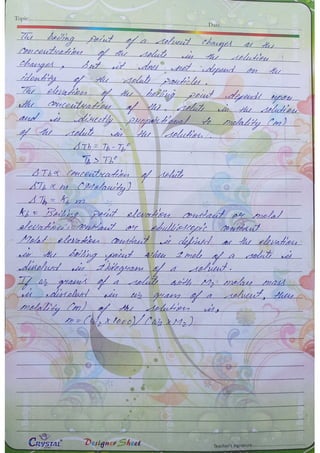 Topic:
Date
The boiling point of a solvent changes as the
concentration of the solute in the solution
changes, but it does not depend on the
identity of the solute particles.
The elevation of the boiling point depends upon
the concentration of the solute in the solution
and is directly proportional to molality (m)
of the solute in the solution.
ΔTb = Tb - Tb°
Tb > Tb°
ΔTb ∝ concentration of solute
ΔTb ∝ m (Molarity)
ΔTb = Kb m
Kb = Boiling point elevation constant or molal
elevation constant or ebullioscopic constant
Molal elevation constant is defined as the elevation
in the boiling point when 1 mole of a solute is
dissolved in 1 kilogram of a solvent.
If w₂ grams of a solute with M₂ molare mass
is dissolved in w₁ grams of a solvent, then
molality (m) of the solution is,
m = (w₂ x 1000) / (w₁ x M₂)
CRYSTAL Designer Sheet Teacher's Signature